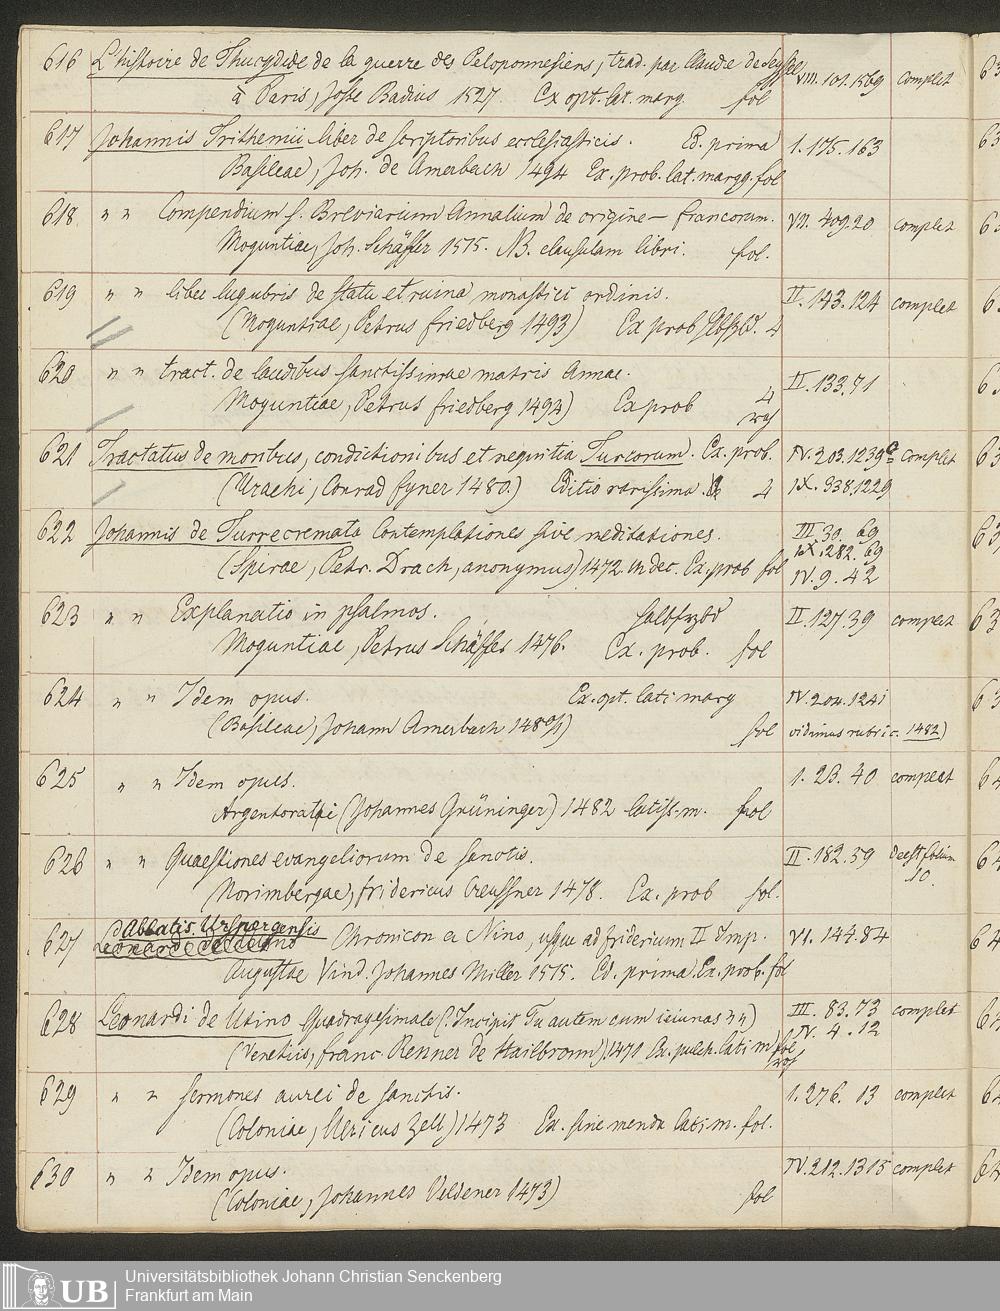 616 L'histoire de Thucydide de la guerre des Peloponnesiens, trad. par Claude de Seyssel VIII. 101. 1569 complet
à Paris, Josse Badius 1527. Ex opt. lat. marg. fol
617 Johannis Trithemii liber de scriptoribus ecclesiasticis. Ed. prima 1. 175. 163
Basileae, Joh. de Amerbach 1494 Ex. prob. lat. margg. fol
618 " " Compendium s. Breviarium Annalium de origine – francorum. VII. 409. 20 complet
Moguntiae, Joh. Schäffer 1515. NB. clausulam libri. fol.
619 " " liber lugubris de statu et ruina monastici ordinis. II. 143. 124 complet
(Moguntiae, Petrus friedberg 1493) Ex prob 4
620 " " tract. de laudibus sanctissimae matris Annae. II. 133. 71
Moguntiae, Petrus friedberg 1494) Ex prob 4
621 Tractatus de moribus, condictionibus et nequitia Turcorum. Ex. prob. IV. 203. 1239 complet
(Urachi, Conrad fyner 1480.) Editio rarissima. 4 IX. 338. 1229
622 Johannis de Turrecremata Contemplationes sive meditationes. III. 30. 69
IX. 282. 69
(Spirae, Petr. Drach, anonymus) 1472 in dec. Ex. prob fol IV. 9. 42
623 " " Explanatio in psalmos. II. 127. 39 complet
Moguntiae, Petrus Schäffer 1476. Ex. prob. fol
624 " " Idem opus. Ex. opt. lati marg IV. 204. 1241
(Basileae, Johann Amerbach 1480/1) fol vidimus rubric. 1482)
625 " " Idem opus. 1. 23. 40 complet
Argentorati (Johannes Grüninger) 1482 latiss. m. fol
626 " " Quaestiones evangeliorum de sanctis. II. 182. 39 deest folium
10.
Norimbergae, fridericus Creussner 1478. Ex. prob fol.
627 Abbatis Urspergensis Chronicon a Nino, usque ad friderium II Imp. VI. 144. 84
Augustae Vind. Johannes Miller 1515. Ed. prima. Ex. prob. fol
628 Leonardi de Utino Quadragesimale (: Incipit Tu autem cum ieiunas ") III. 83. 73 complet
(Venetiis, franc. Renner de Hailbronn) 1471 Ex. pulch. lati m fol IV. 4. 12
629 " " sermones aurei de sanctis. 1. 276. 13 complet
(Coloniae, Ulricus Zell) 1473 Ex. sine menda lati m. fol.
630 " " Idem opus. IV. 212. 1315 complet
(Coloniae, Johannes Veldener 1473) fol
UB Universitätsbibliothek Johann Christian Senckenberg
Frankfurt am Main